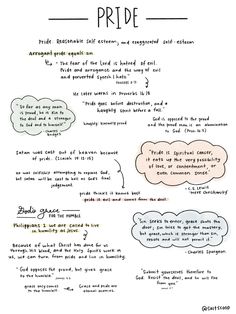 PRIDE
Pride: Reasonable self esteem, and exaggerated self-esteem
Arrogant pride equals sin
"The fear of the Lord is hatred of evil.
Pride and arrogance and the way of evil
and perverted speech I hate."
Proverbs 8:13
He later warns in Proverbs 16:18
"Pride goes before destruction, and a
haughty spirit before a fall."
"So far as any man
is proud, he is like to
the devil and a stranger
to God and to himself."
God is opposed to the proud
and the proud man is an abomination
to God (Prov. 16:5)
Satan was cast out of heaven because
of pride. (Isaiah 14:12-15)
"Pride is spiritual cancer,
it eats up the very possibility
of love, or contentment, or
even common sense."
C.S. Lewis
"Mere Christianity"
pride thinks it knows best
God's grace
FOR THE HUMBLE
Philippians 2 we are called to live
in humility as Jesus.
Because of what Christ has done for us
through his blood, and the Holy Spirit's work in
us, we can turn from pride and live in humility.
"Sin seeks to enter, grace shuts the
door; sin tries to get the mastery,
but grace, which is stronger than sin,
resists and will not permit it."
- Charles Spurgeon
"God opposes the proud, but gives grace
to the humble."
"Submit yourselves therefore to
God. Resist the devil, and he will flee
from you."
Grace and pride are
eternal enemies